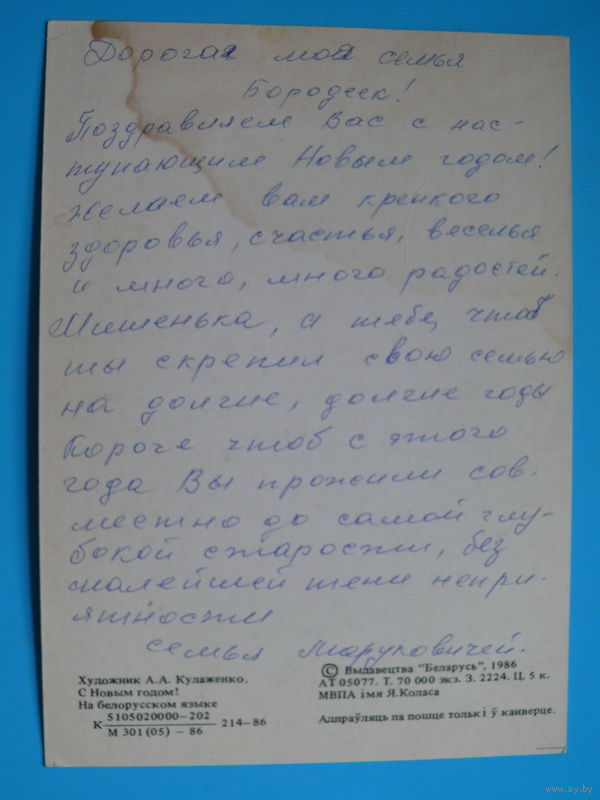 Дорогая моя семья
Бородеек!
Поздравляем Вас с нас-
тупающим Новым годом!
Желаем вам крепкого
здоровья, счастья, веселья
и много, много радостей.
Мишенька, а тебе, чтоб
ты скрепил свою семью
на долгие, долгие годы
Короче чтоб с этого
года Вы прожили сов-
местно до самой глу-
бокой старости, без
малейшей тени непри-
ятности
семья Маруковичей.
Художник А.А. Кулаженко.
С Новым годом!
На белорусском языке
К 5105020000—202 / М 301(05) — 86 214—86
© Выдавецтва "Беларусь", 1986
АТ 05077. Т. 70 000 экз. З. 2224. Ц. 5 к.
МВПА імя Я.Коласа
Адпраўляць па пошце толькі ў канверце.
www.ay.by